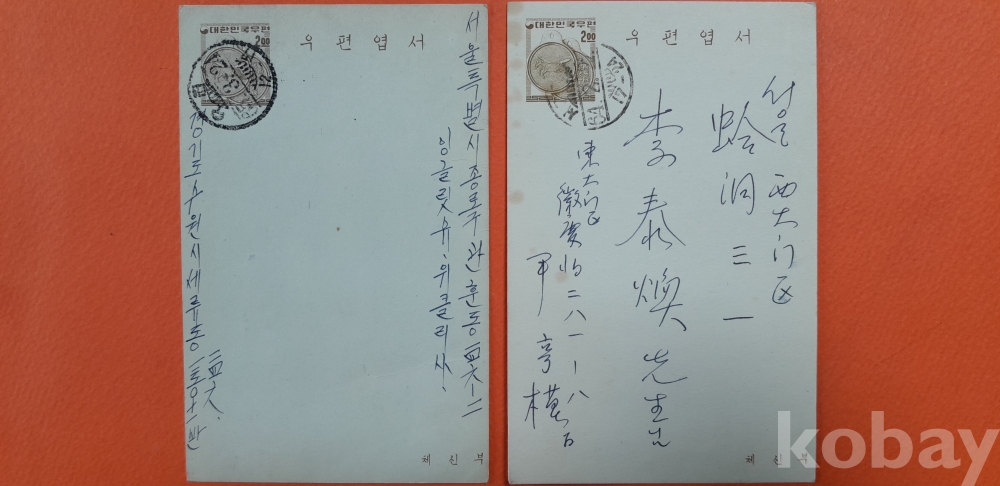 대한민국우편
2.00
우편엽서
서울특별시종로구관훈동
잉글릿슈・위클리사.
경기도수원시세류동
체신부
대한민국우편
2.00
우편엽서
서울 西大门区
蛤洞 三一
李泰煥 先生
東大门区
二八一-八
체신부
kobay